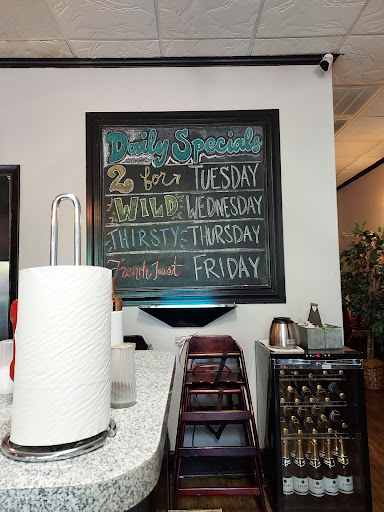 Daily Specials
2 for TUESDAY
WILD WEDNESDAY
THIRSTY THURSDAY
French Toast FRIDAY